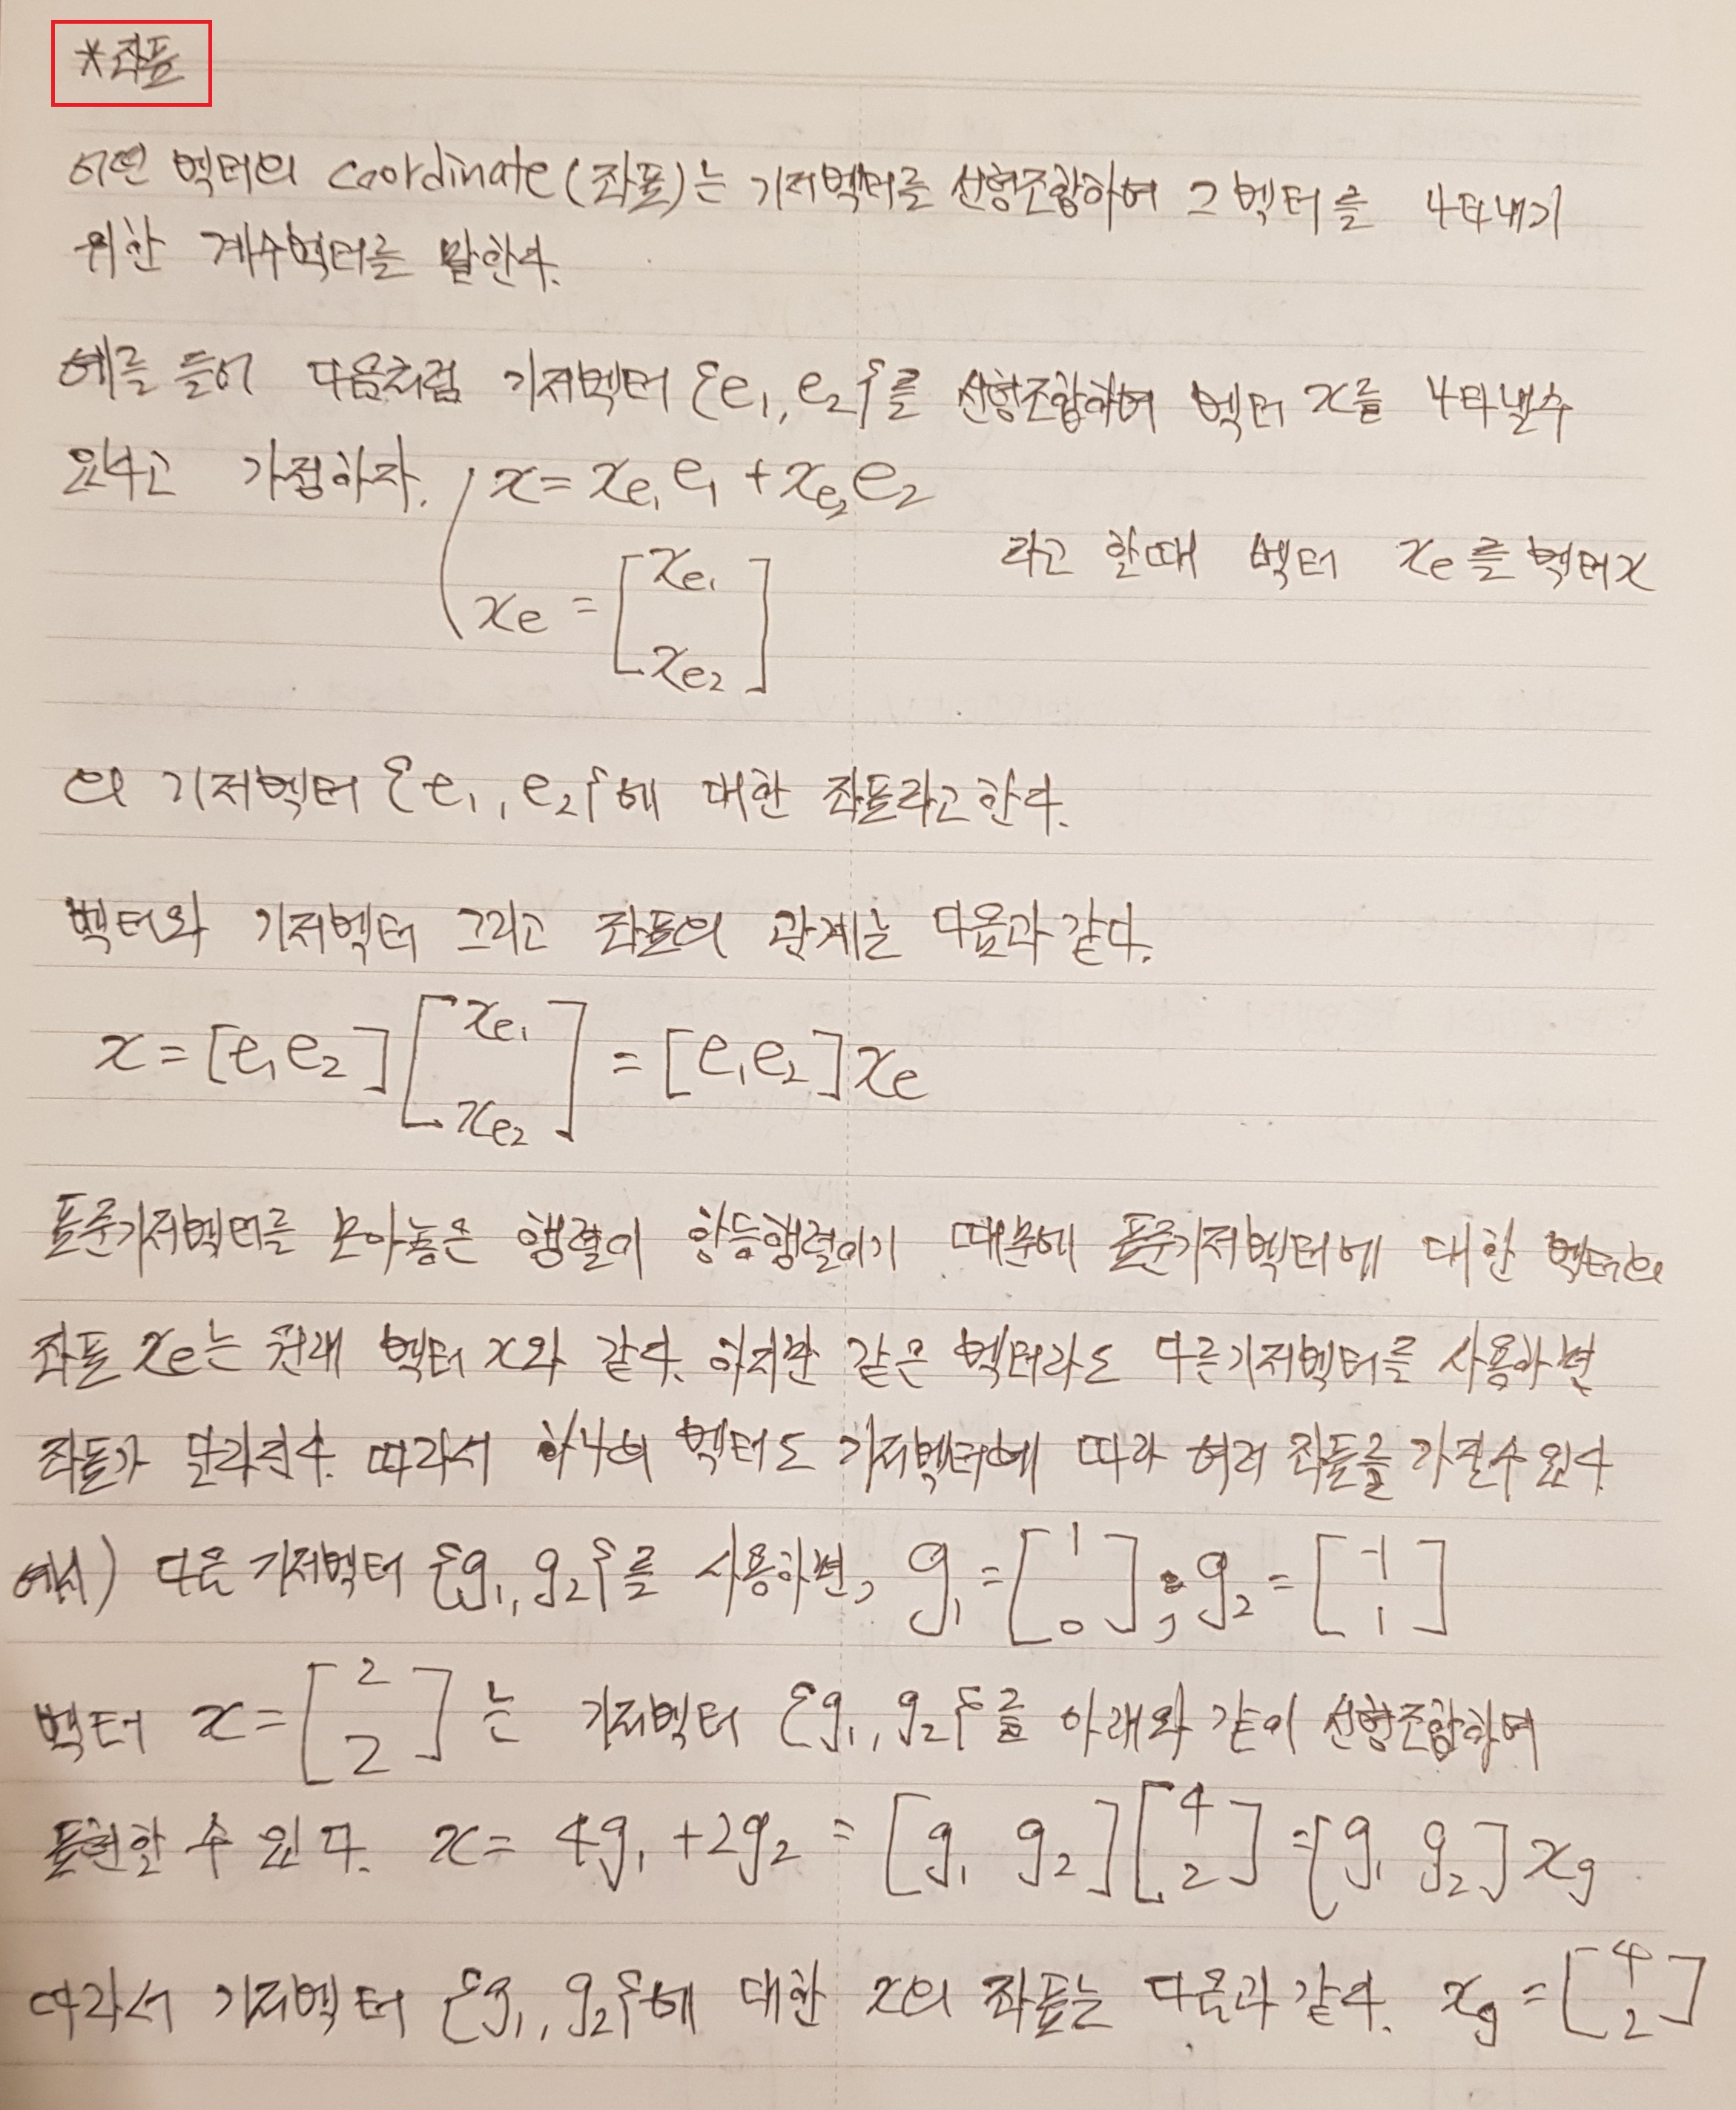 *좌표
어떤 벡터의 coordinate(좌표)는 기저벡터를 선형조합하여 그 벡터를 나타내기
위한 계수벡터를 말한다.
예를 들어 다음처럼 기저벡터 {e₁, e₂}를 선형조합하여 벡터 x를 나타낼수
있다고 가정하자. x = xe₁e₁ + xe₂e₂
라고 할때 벡터 xe를 벡터x
xe = [xe₁
xe₂]
의 기저벡터 {e₁, e₂}에 대한 좌표라고한다.
벡터와 기저벡터 그리고 좌표의 관계는 다음과 같다.
x = [e₁e₂] [xe₁
xe₂] = [e₁e₂]xe
표준기저벡터를 모아놓은 행렬이 항등행렬이기 때문에 표준기저벡터에 대한 벡터의
좌표 xe는 원래 벡터 x와 같다. 하지만 같은 벡터라도 다른기저벡터를 사용하면
좌표가 달라진다. 따라서 하나의 벡터도 기저벡터에 따라 여러 좌표를 가질수있다
예시) 다음 기저벡터 {g₁, g₂}를 사용하면, g₁ = [1 0]; g₂ = [-1 1]
벡터 x = [2 2]는 기저벡터 {g₁, g₂}를 아래와 같이 선형조합하여
표현할 수 있다. x = 4g₁ + 2g₂ = [g₁ g₂] [4 2] = [g₁ g₂] xg.
따라서 기저벡터 {g₁, g₂}에 대한 x의 좌표는 다음과 같다. xg = [4 2]